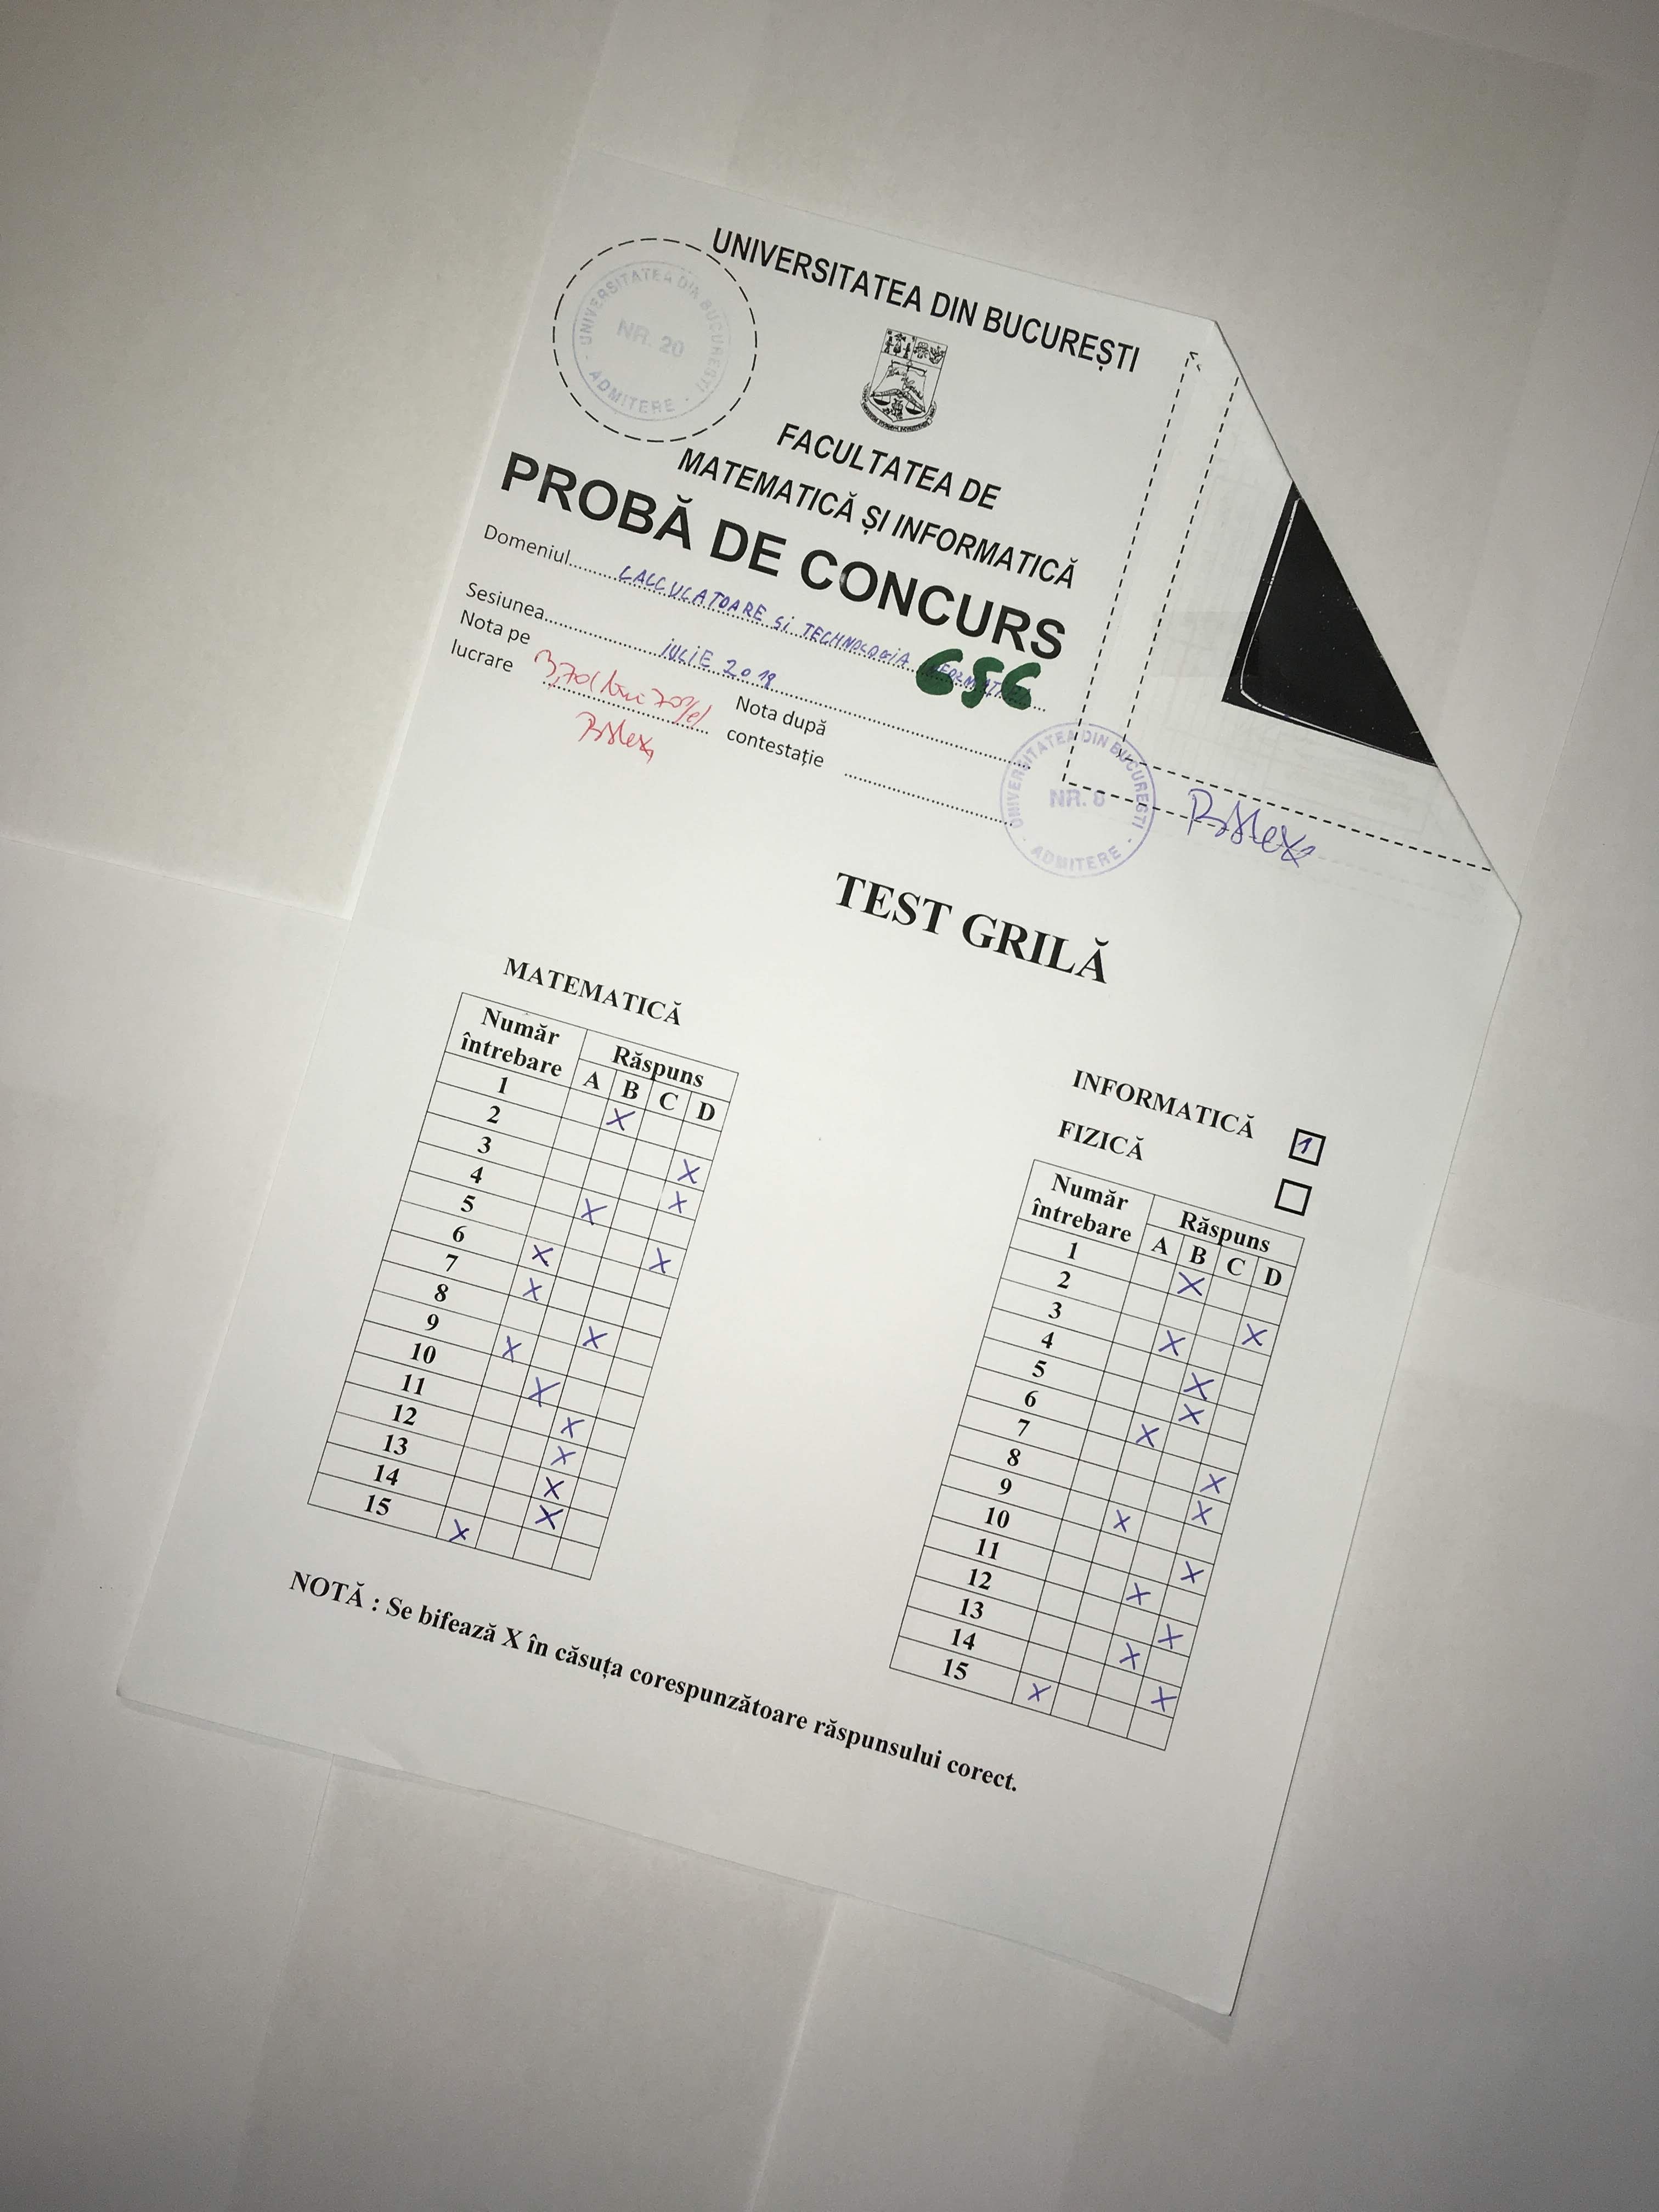 UNIVERSITATEA DIN BUCUREȘTI
UNIVERSITATEA DIN BUCUREȘTI
NR. 20
ADMITERE
FACULTATEA DE
MATEMATICĂ ȘI INFORMATICĂ
PROBĂ DE CONCURS
Domeniul CALCULATOARE și TECHNOLOGIA
656
Sesiunea IULIE 2018
Nota pe
lucrare 3,70
Nota după
contestație
UNIVERSITATEA DIN BUCUREȘTI
NR. 8
ADMITERE
TEST GRILĂ
MATEMATICĂ
Număr
întrebare
Răspuns
A B C D
1 X
2 X
3 X
4 X
5 X
6 X
7 X
8 X
9 X
10 X
11 X
12 X
13 X
14 X
15 X
INFORMATICĂ 1
FIZICĂ
Număr
întrebare
Răspuns
A B C D
1 X
2 X
3 X
4 X
5 X
6 X
7 X
8 X
9 X
10 X
11 X
12 X
13 X
14 X
15 X
NOTĂ : Se bifează X în căsuța corespunzătoare răspunsului corect.